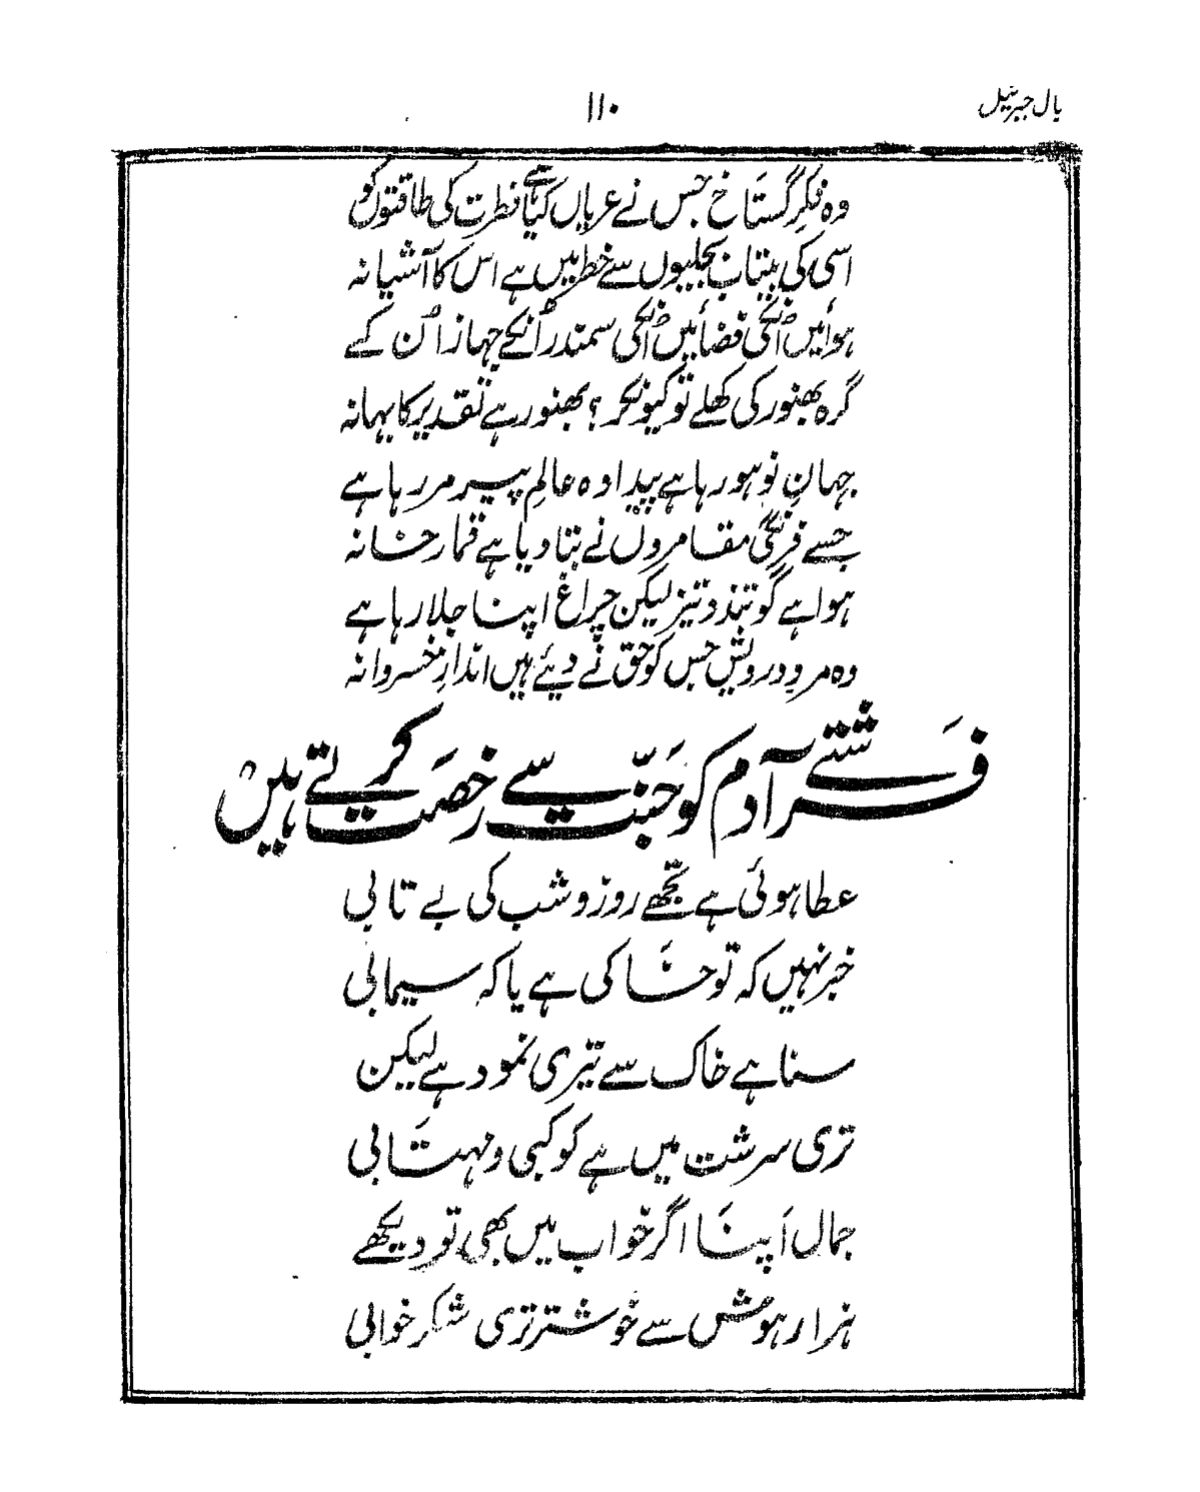 بال جبریل
۱۱۰
وہ فکرِ گستاخ جس نے عریاں کیا ہے فطرت کی طاقتوں کو
اسی کی بیتاب بجلیوں سے خطر میں ہے اس کا آشیانہ
ہوائیں اُنکی فضائیں اُنکی سمندر اُنکے جہاز اُن کے
گرہ بھنور کی کھلے تو کیونکر؟ بھنور ہے تقدیر کا بہانہ
جہانِ نو ہو رہا ہے پیدا وہ عالمِ پیر مر رہا ہے
جسے فرنگی مقامروں نے بنا دیا ہے قمار خانہ
ہوا ہے گو تند و تیز لیکن چراغ اپنا جلا رہا ہے
وہ مردِ درویش جس کو حق نے دیئے ہیں اندازِ خسروانہ
فرشتے آدم کو جنّت سے رخصت کرتے ہیں
عطا ہوئی ہے تجھے روز و شب کی بے تابی
خبر نہیں کہ تو خاکی ہے یا کہ سیمابی
سنا ہے خاک سے تیری نمود ہے لیکن
تری سرشت میں ہے کوکبی و مہتابی
جمال اپنا اگر خواب میں بھی تو دیکھے
ہزار ہوش سے خوشتر تری شکر خوابی